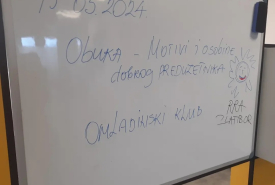 15 05 2024
Obuka - Motivi i osobine
dobrog PREDUZETNIKA
OMLADINSKI KLUB
RRA
ZLATIBOR